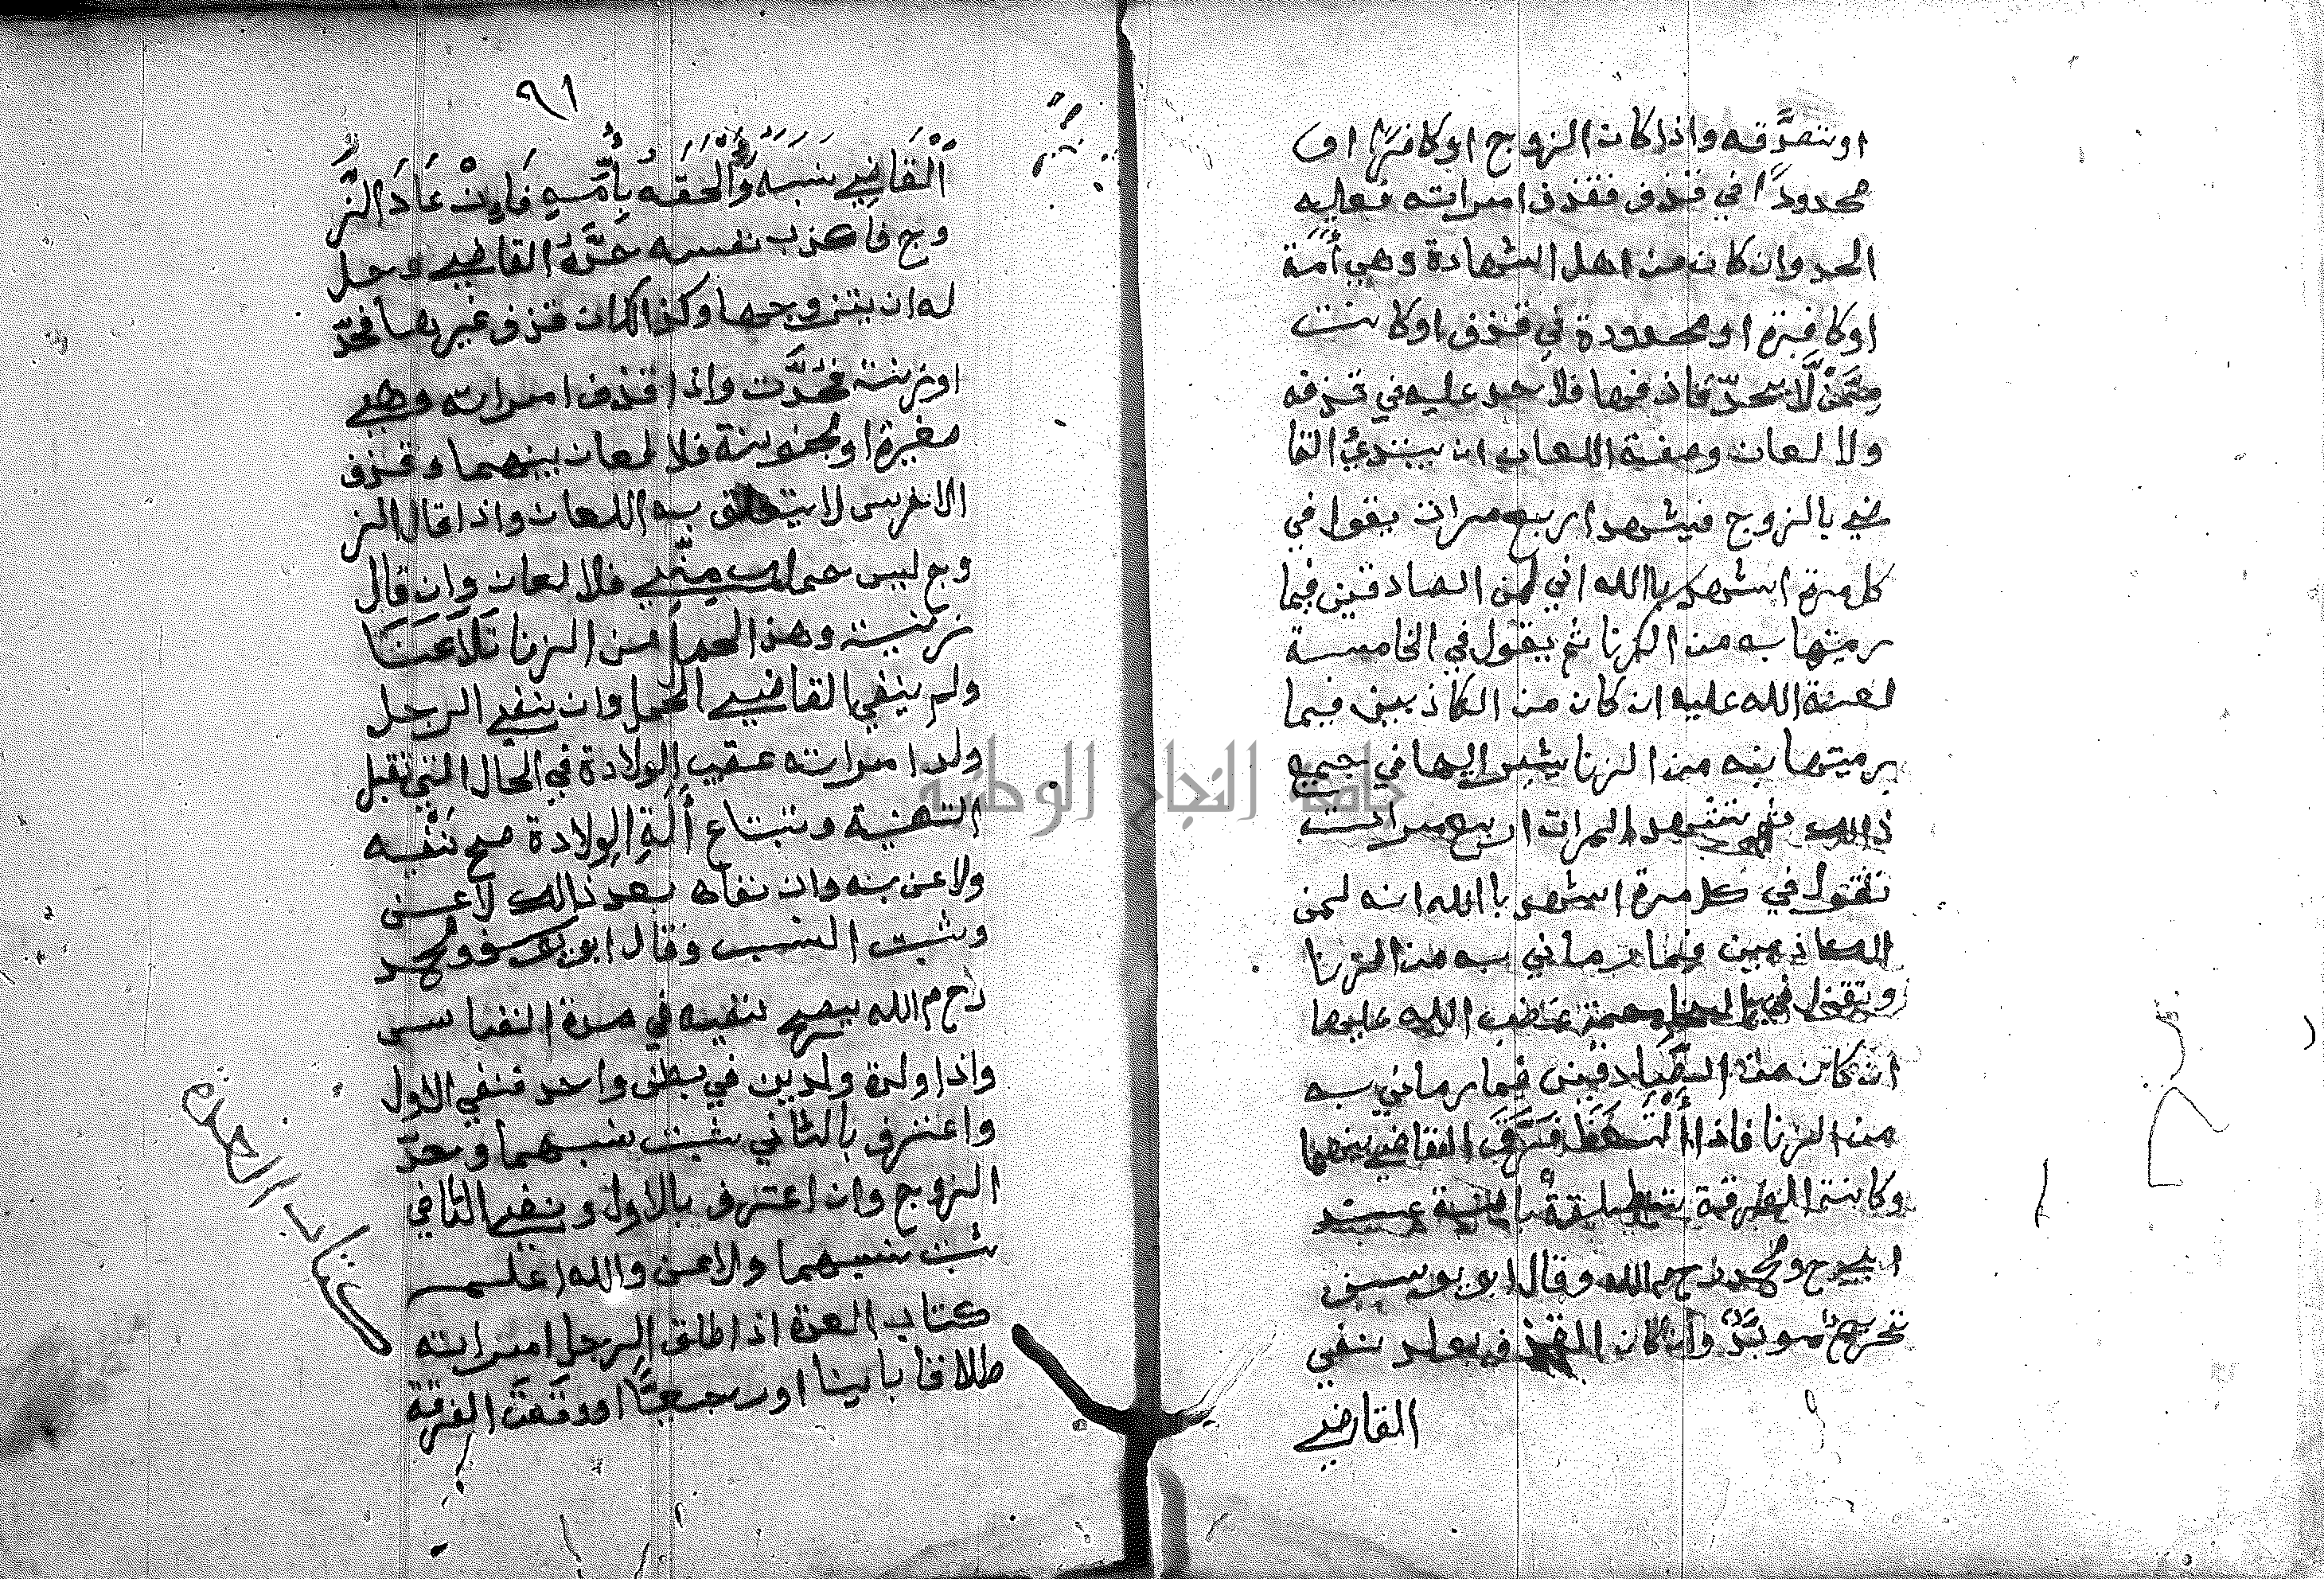 او تصدقه واذا كان الزوج او كافرا او
محدودًا في قذف فقذف امراته فعليه
الحد وان كان من اهل الشهادة وهي أمة
او كافرة او محدودة في قذف او كانت
مِمَّنْ لَّا يحدّ قاذفها فلا حد عليه في قذفه
ولا لعان وصفة اللعان ان يبتدئ القا
ضي بالزوج فيشهد اربع مرات يقول في
كل مرة اشهد باالله اني لمن الصادقين فيما
رميتها به من الزنا ثم يقول في الخامسة
لعنة الله عليه ان كان من الكاذبين فيما
رميتها به من الزنا يشير اليها في جميع
ذالك ثم تشهد المرات اربع مرات
تقول في كل مرة اشهد باالله انه لمن
الكاذبين فيما رماني به من الزنا
وتقول في الخامسة غضب الله عليها
ان كان من الصَّادقين فيما رماني به
من الزنا فاذا التعنا فرّق القاضي بينهما
وكانت الفرقة تطليقة باينة عند
ابي ح ومحمد رحم الله وقال ابو يوسف
تحريم موبّدٌ وان كان القذف بولد ينفي
القاضي
٩١
اَلْقَاضِي نَسَبَهُ وَّاَلْحَقَه بِأُمِّهِ فَاِنْ عَادَ الزَّ
وج فاكذب نفسه حَدَّهُ القاضي وحل
له ان يتزوجها وكذا لكان قذف غيرها فحدّ
او زنت فحُدَّت واذا قذف امراته وهي
صغيرة او مجنونة فلا لعان بينهما وقذف
الاخرس لا يتعلق به اللعان واذا قال الز
وج ليس حملك مِنِّي فلا لعان وان قال
زنيت وهذا الحمل من الزنا تَلَاعَنَا
ولم ينفي القاضي الحمل وان نفي الرجل
ولد امراته عقيب الولادة في الحال التي تقبل
التهنية وتبتاع ألَة الولادة صح نَفْيه
ولاعن به وان نفاه بعد ذالك لاعن
وثبت النسب وقال ابو يوسف ومحمد
رحم الله يصح نفيه في مدة النفاس
واذا ولدة ولدين في بطن واحد فنفي الاول
واعترف بالثاني ثبت نسبهما وحدّ
الزوج وان اعترف بالاول ونفي الثاني
ثبت نسبهما ولاعن والله اعلم
كتاب العدة اذا طلق الرجل امراته
طلاقا باينا او رجعيًّا او وقَعَت الفرقة
كتاب العدة
جامعة النجاح الوطنية